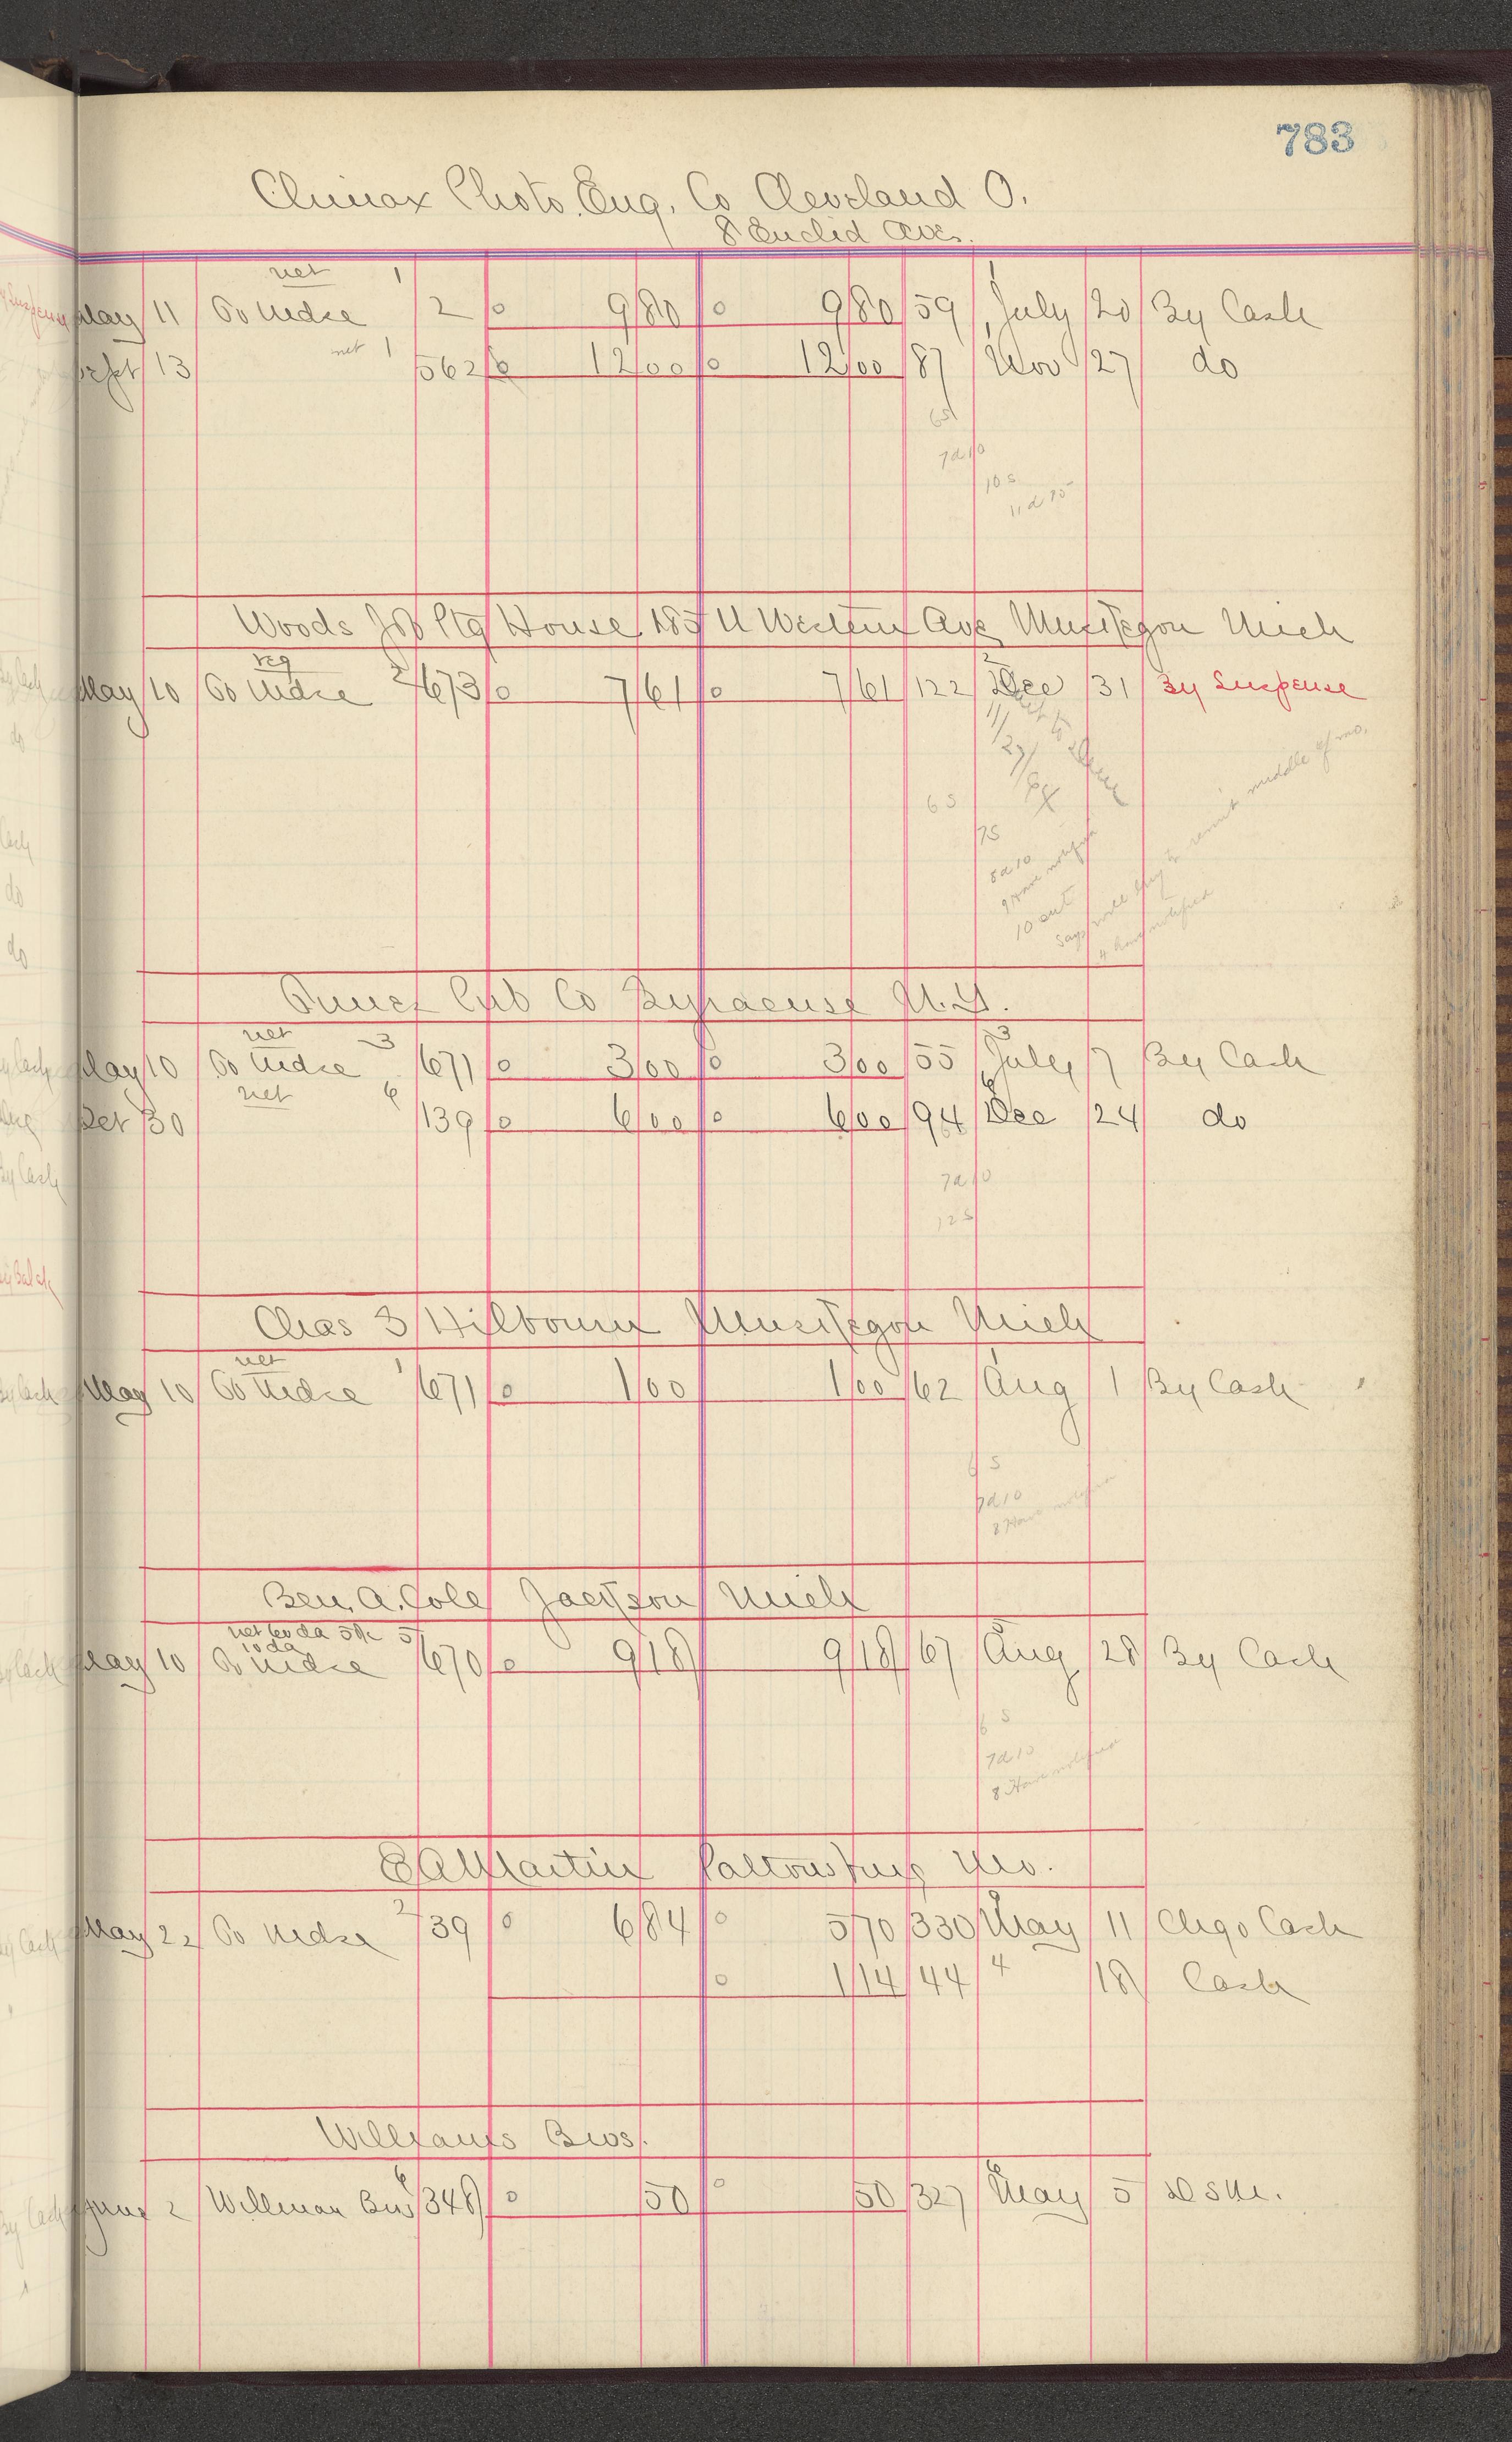 783
Climax Photo. Eng. Co Cleveland O.
8 Euclid Ave.
net 1
May 11 To Mdse 2 9 80 9 80 59 July 20 By Cash
net 1
Sept 13 562 12 00 12 00 87 Nov 27 do
6s
7d10
10s
11d 25
Woods Job Ptg House 185 W Western Ave Muskegon Mich
reg 2 2
May 10 To Mdse 673 7 61 7 61 122 Dec 31 By Suspense
11/27/
6s
7s
8d10
9 Have notified
10 out
says will try to remit middle of mo.
11 have notified
Pub Co Syracuse N.Y.
net 3 3
May 10 To Mdse 671 3 00 3 00 55 July 7 By Cash
net 6 6
Oct 30 139 6 00 6 00 94 Dec 24 do
7d10
12s
Chas B Hilbourn Muskegon Mich
net 1 1
May 10 To Mdse 671 1 00 1 00 62 Aug 1 By Cash
6s
7d10
8 Have notified
Ben. A. Cole Jackson Mich
net 60 da 5% 5 5
10 da
May 10 To Mdse 670 9 18 9 18 67 Aug 28 By Cash
6s
7d10
8 Have notified
E A Martin Pattonsburg Mo.
2 9
May 22 To Mdse 39 6 84 5 70 330 May 11 Chgo Cash
1 14 44 4 18 Cash
Williams Bros.
6 6
June 2 Bros 348 50 50 327 May 5